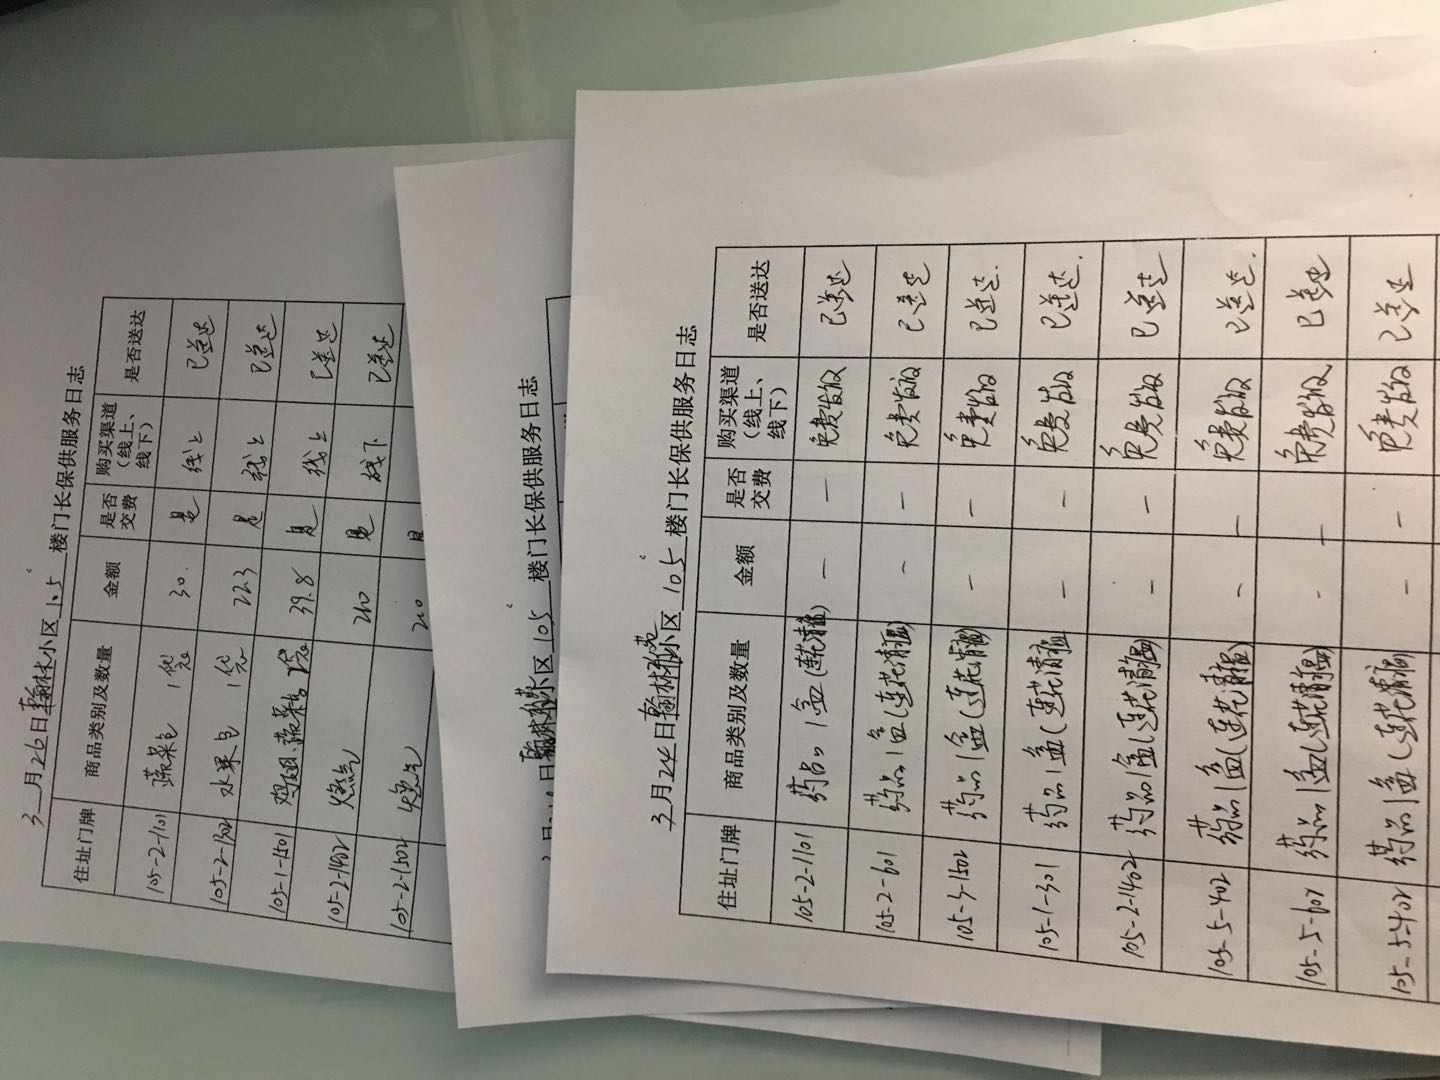 3月26日翰林小区105楼门长保供服务日志
住址门牌 商品类别及数量 金额 是否交费 购买渠道(线上、线下) 是否送达
105-2-1101 蔬菜包 1袋 30. 是 线上 已送达
105-2-1302 水果包 1袋 22.3 是 线上 已送达
105-1-1501 鸡翅 蔬菜 1袋 39.8 是 线上 已送达
105-2-1402 燃气 210 是 线下 已送达
105-2-1502 燃气 200 是
月 日翰林 小区105楼门长保供服务日志
3月24日翰林苑小区105楼门长保供服务日志
住址门牌 商品类别及数量 金额 是否交费 购买渠道(线上、线下) 是否送达
105-2-1101 药品1盒(连花清瘟) — — 免费发放 已送达
105-2-601 药品1盒(连花清瘟) — — 免费发放 已送达
105-3-1502 药品1盒(连花清瘟) — — 免费发放 已送达.
105-1-301 药品1盒(连花清瘟) — — 免费发放 已送达.
105-2-1402 药品1盒(连花清瘟) — — 免费发放 已送达
105-5-402 药品1盒(连花清瘟) — — 免费发放 已送达.
105-5-607 药品1盒(连花清瘟) — — 免费发放 已送达
105-5-402 药品1盒(连花清瘟) — — 免费发放 已送达